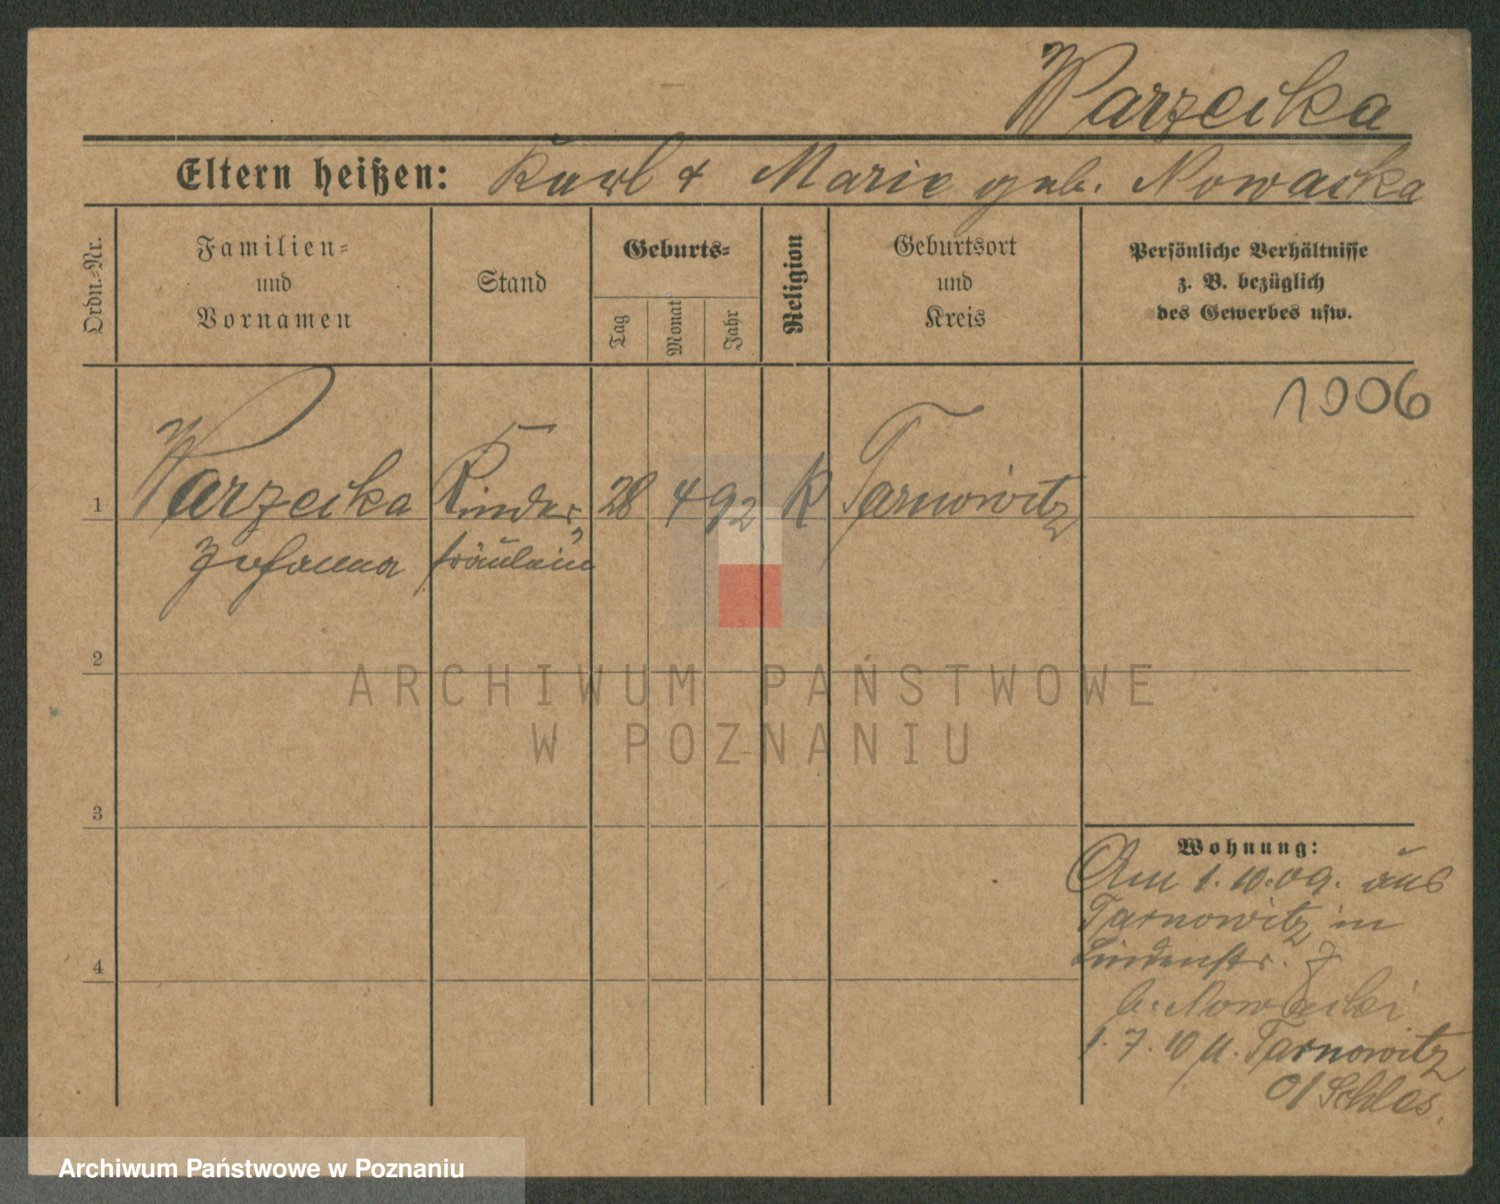 Warzecka
Eltern heißen: Karl & Marie geb. Nowacka
Ordn.-Nr.
Familien-
und
Vornamen
Stand
Geburts-
Tag
Monat
Jahr
Religion
Geburtsort
und
Kreis
Persönliche Verhältnisse
z. B. bezüglich
des Gewerbes usw.
1906
1 Warzecka Kinder 28 4 92 K Tarnowitz
Johanna fräulein
2
3
4
Wohnung:
Am 1.10.09. aus
Tarnowitz in
Lindenstr. 7
b. Nowacki
1.7.10 n. Tarnowitz
O/Schles.
ARCHIWUM PAŃSTWOWE
W POZNANIU
Archiwum Państwowe w Poznaniu